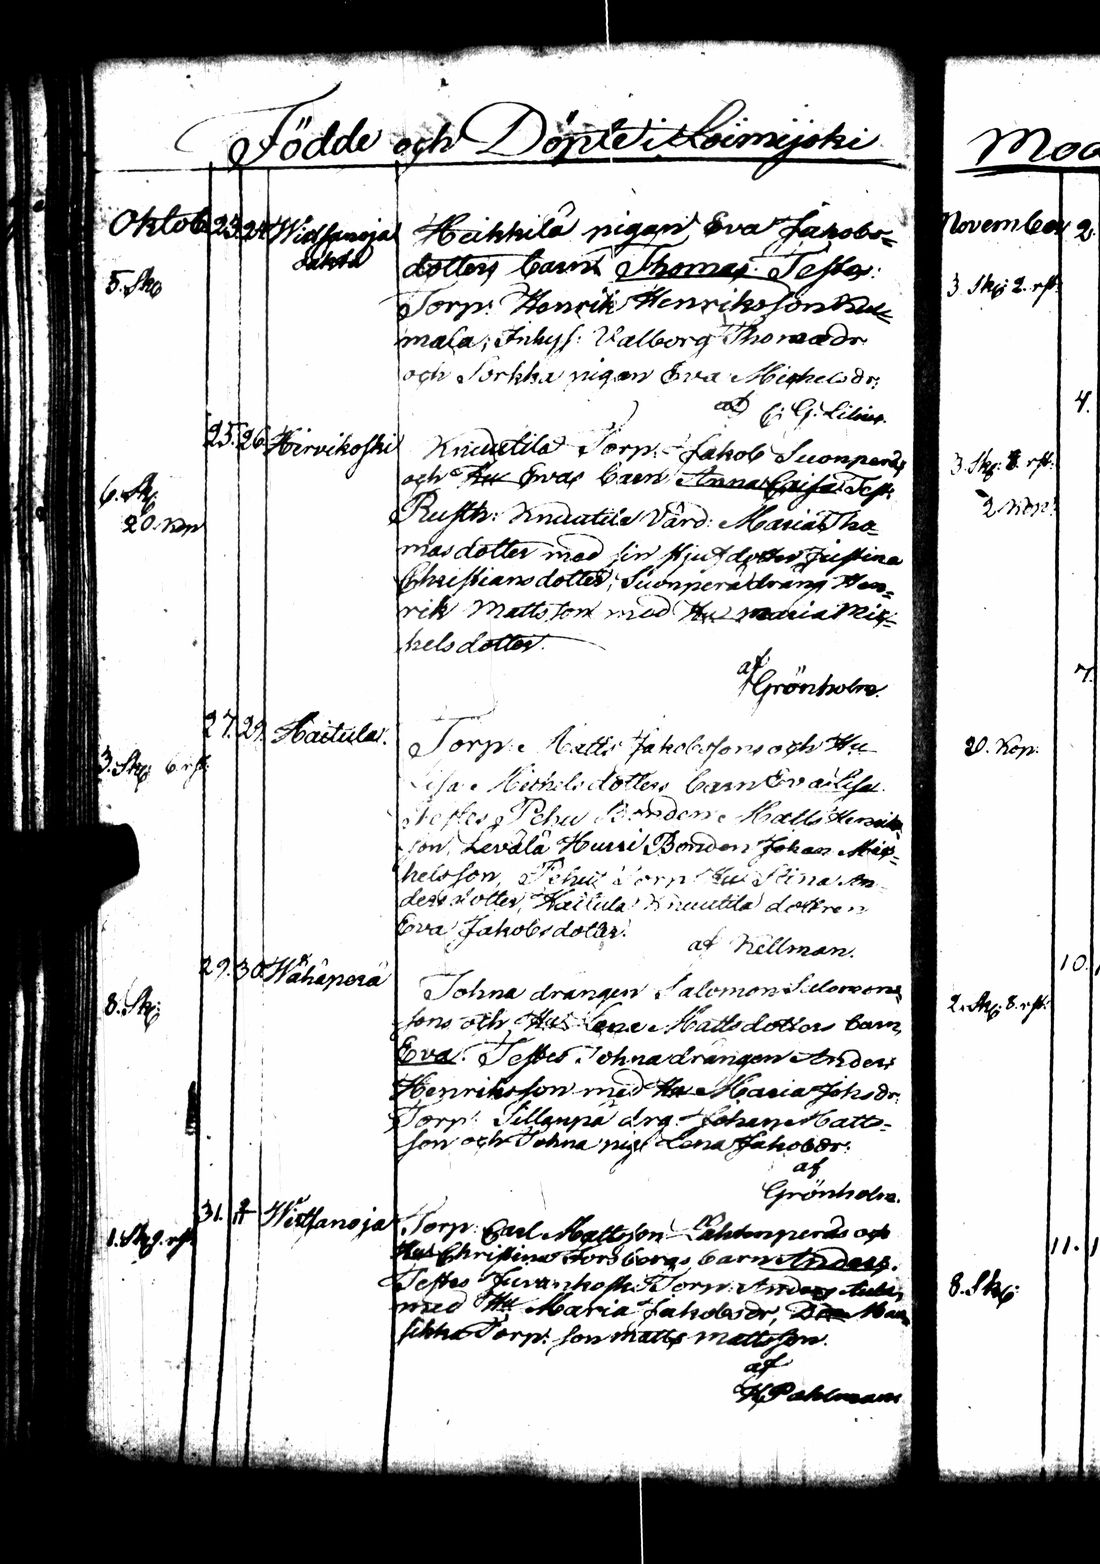 Födde och Döpte i Loimijoki
Oktob 23. 24. Widsanoja Heikkilä pigan Eva Jakobs=
dotters barn Thomas. Testes:
5. Sk
Torp: Henrik Henriksson
mala, Inhys: Valborg Thomædr
och Torkka pigan Eva Michelsdr:
af C. G. Lilius.
25. 26. Hirvikoski Knuutila Torp: Jakob Suonperäs
och Hu Evas barn Anna Caisa: Test:
6. Sk.
20. Kop
Rusth: Knuutila Värd: Maria Tho=
masdotter med sin stjufdotter Justina
Christiansdotter, Suonperä dräng Hen=
rik Mattsson med Hu Maria Mic=
helsdotter.
af
Grönholm.
27. 29. Haitula. Torp: Matts Jakobssons och Hu
3. Sk: 6 rst:
Lisa Michelsdotters barn Eva Lisa.
Testes, Pehu Bonden Matts Henriks
son, Levälä Hussi Bonden Johan Mic=
helsson, Pehu Torp: Hu Stina An=
dersdotter, Haitula Knuutila dottren
Eva Jakobsdotter.
af Kellman.
29. 30. Wähäperä
Tohna drängen Salomon Salomons
8. Sk:
sons och Hus Lena Mattsdotters barn
Eva. Testes Tohna drängen Anders
Henriksson med Hu Maria Johsdr:
Torp: Sillanpä drg: Johan Matts=
son och Tohna pig: Lena Jakobsdr:
af
Grönholm.
31. Widsanoja Torp: Carl Mattsson Lähdenperäs och
1. Sk 9. rst.
Hus Christina Forsbergs barn Anders.
Testes Juvankoski Torp: Anders
med Hu Maria Jakobsdr,
sikka Torp: son Matts Mattsson.
af
K Pahlman
Moo
November 2.
3 Sk: 2. rst:
4.
3 Sk: 8. rst:
2 Kop:
7.
20. Kop:
10.
2. Sk: 8. rst:
11.
8. Sk: